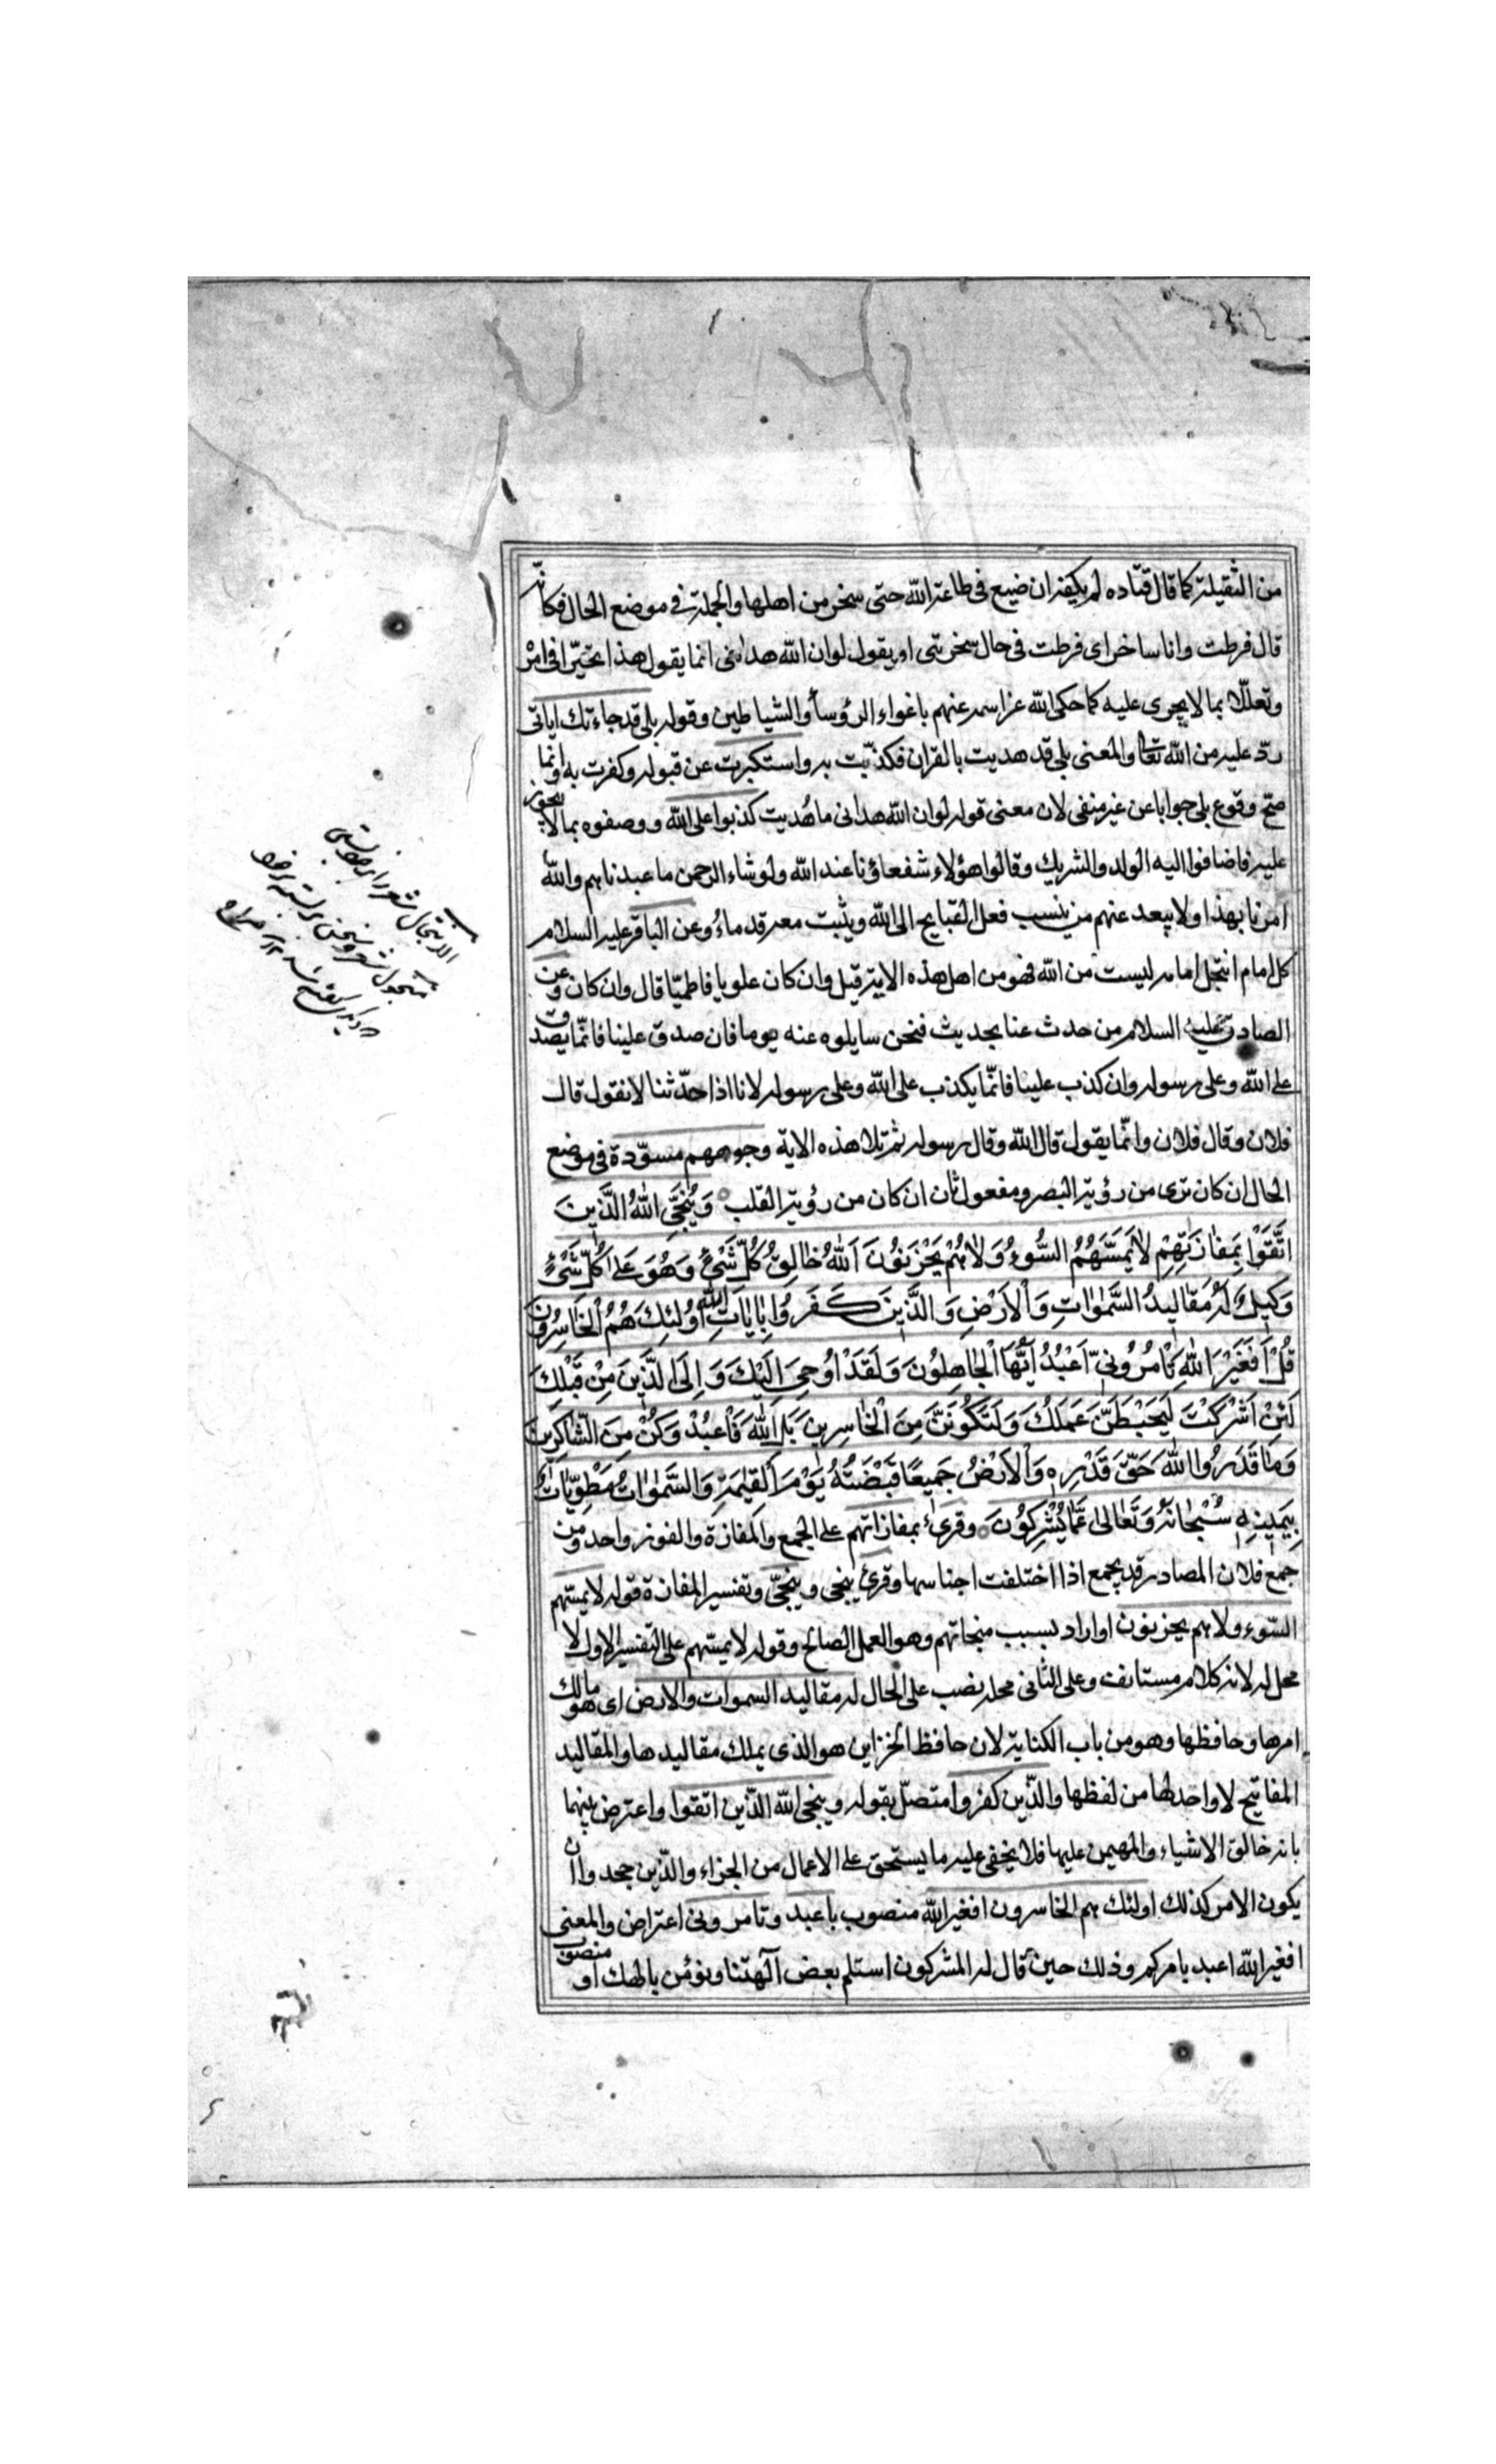 من الثقيلة كما قال قتاده لم يكفه ان ضيع في طاعة الله حتى سخر من اهلها والجملة في موضع الحال فكانّه
قال فرطت وانا ساخر اى فرطت في حال سخريتى او يقول لو ان الله هدانى انما يقول هذا تحيّرا في امره
وتعلّلا بما لا يجرى عليه كما حكى الله عز اسمه عنهم باغواء الرؤسأ والشياطين وقوله بلى قد جاءتك اياتى
ردّ عليه من الله تعا والمعنى بلى قد هديت بالقران فكذّبت به واستكبرت عن قبوله وكفرت به وانما
صحّ وقوع بلى جوابا عن غير منفى لان معنى قوله لو ان الله هدانى ما هُديت كذبوا على الله ووصفوه بما لا يجوز
عليه فاضافوا اليه الولد والشريك وقالوا هؤلاء شفعاؤنا عند الله ولو شاء الرحمن ما عبدناهم والله
امرنا بهذا ولا يبعد عنهم من ينسب فعل القبايح الى الله ويثبت معه قدماءُ وعن الباقر عليه السلام
كل امام انتحل امامه ليست من الله فهو من اهل هذه الاية قيل وان كان علويا فاطميّا قال وان كان وعن
الصادق عليه السلام من حدث عنا بحديث فنحن سايلوه عنه يوما فان صدق علينا فانّما يصدق
على الله وعلى رسوله وان كذب علينا فانّما يكذب على الله وعلى رسوله لانا اذا حدّثنا لا نقول قال
فلان وقال فلان وانّما يقول قال الله وقال رسوله ثم تلا هذه الاية وجوههم مسوّدة في موضع
الحال ان كان ترى من رؤية البصر ومفعول ثان ان كان من رؤية القلب وَيُنَجِّى اللهُ الَّذِينَ
اتَّقَوْا بِمَفازَتِهِمْ لا يَمَسُّهُمُ السُّوءُ وَلا هُمْ يَحْزَنُونَ اَللهُ خالِقُ كُلِّ شَىْءٍ وَهُوَ عَلى كُلِّ شَىْءٍ
وَكِيلٌ لَهُ مَقالِيدُ السَّمٰواتِ وَالْاَرْضِ وَالَّذِينَ كَفَرُوا بِاٰياتِ الله اُولٰئِكَ هُمُ الْخاسِرُونَ
قُلْ اَفَغَيْرَ اللهِ تَأْمُرُونّى اَعْبُدُ اَيُّهَا الْجاهِلُونَ وَلَقَدْ اُوحِىَ اِلَيْكَ وَاِلَى الَّذِينَ مِنْ قَبْلِكَ
لَئِنْ اَشْرَكْتَ لَيَحْبَطَنَّ عَمَلُكَ وَلَتَكُونَنَّ مِنَ الْخاسِرِينَ بَلِ اللهَ فَاعْبُدْ وَكُنْ مِنَ الشّاكِرِينَ
وَما قَدَرُوا اللهَ حَقَّ قَدْرِهِ وَالْاَرْضُ جَمِيعًا قَبْضَتُهُ يَوْمَ الْقِيٰمَةِ وَالسَّمٰواتُ مَطْوِيّاتٌ
بِيَمِينِهِ سُبْحانَهُ وَتَعالى عَمّا يُشْرِكُونَ وقرئ بمفازاتهم على الجمع والمفازة والفوز واحد ومن
جمع فلان المصادر قد يجمع اذا اختلفت اجناسها وقرئ ينجى وينجّى وتفسير المفازة قوله لا يمسّهم
السّوء ولا هم يحزنون او اراد بسبب منجاتهم وهو العمل الصالح وقوله لا يمسّهم على التفسير الاول لا
محل له لانه كلام مستانف وعلى الثانى محله نصب على الحال له مقاليد السموات والارض اى هو مالك
امرها وحافظها وهو من باب الكناية لان حافظ الخزاين هو الذى يملك مقاليدها والمقاليد
المفاتيح لا واحد لها من لفظها والذّين كفروا متصل بقوله وينجى الله الذّين اتقوا واعترض بينهما
بانه خالق الاشياء والمهيمن عليها فلا يخفى عليه ما يستحق على الاعمال من الجزاء والذّين جحدوا ان
يكون الامر كذلك اولئك هم الخاسرون افغير الله منصوب باعبد وتامرونى اعتراض والمعنى
افغير الله اعبد بامركم وذلك حين قال له المشركون استلم بعض آلهتنا ونؤمن بالهك او منصوب